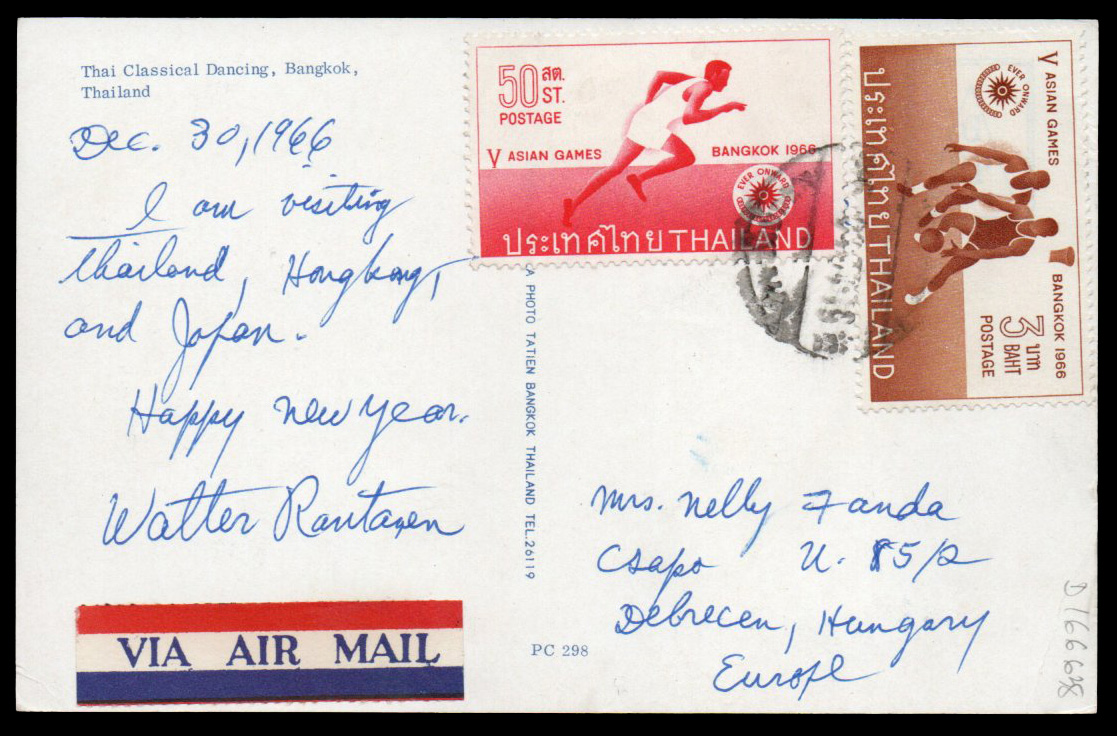 Thai Classical Dancing, Bangkok,
Thailand
Dec. 30, 1966
I am visiting
Thailand, Hongkong,
and Japan.
Happy new year.
Walter Rantanen
VIA AIR MAIL
A PHOTO TATIEN BANGKOK THAILAND TEL.26119
PC 298
50 สต.
ST.
POSTAGE
V ASIAN GAMES BANGKOK 1966
EVER ONWARD
ประเทศไทย THAILAND
V ASIAN GAMES
EVER ONWARD
BANGKOK 1966
3 บาท
BAHT
POSTAGE
ประเทศไทย THAILAND
Mrs. Nelly Fanda
Csapo U. 85/2
Debrecen, Hungary
Europe